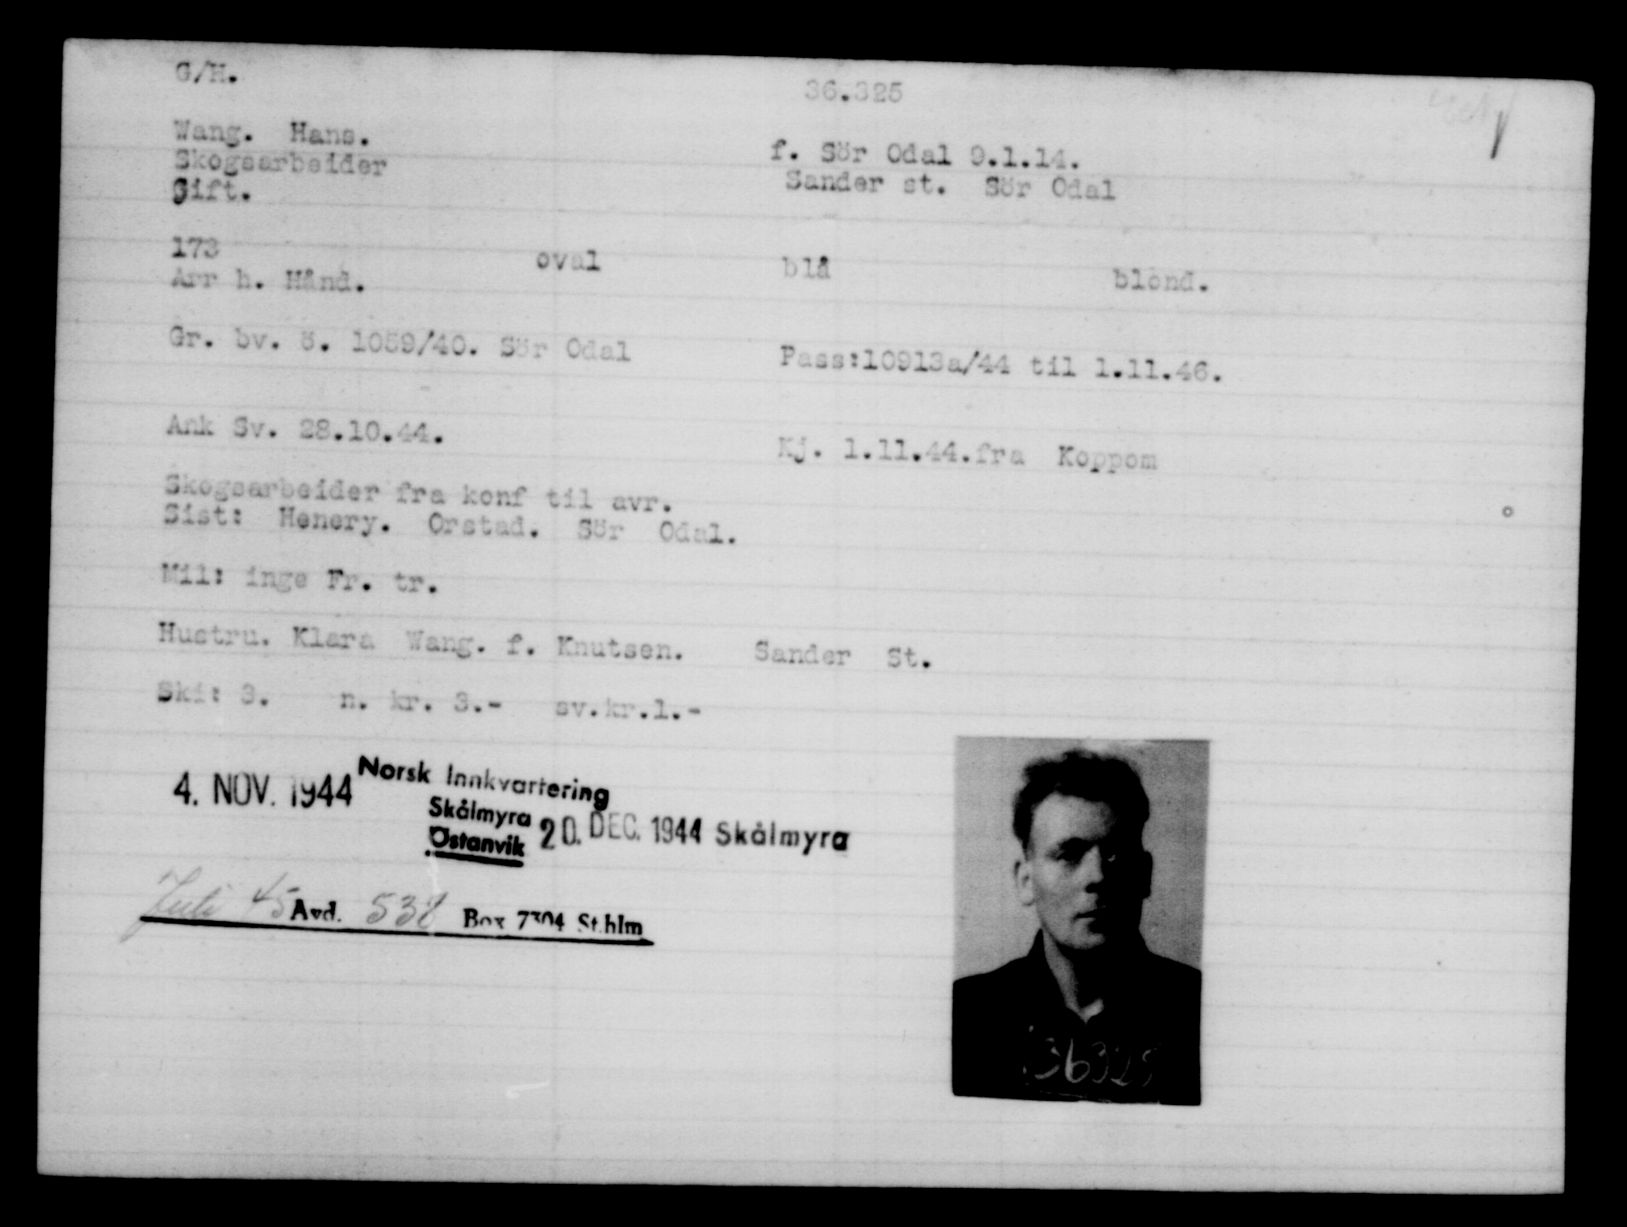 G/H.
36.325
Wang. Hans.
f. Sör Odal 9.1.14.
Skogsarbeider
Sander st. Sör Odal
Gift.
173 oval blå blond.
Arr h. Hånd.
Gr. bv. ö. 1059/40. Sör Odal
Pass:10913a/44 til 1.11.46.
Ank Sv. 28.10.44.
Kj. 1.11.44.fra Koppom
Skogsarbeider fra konf til avr.
Sist: Henery. Orstad. Sör Odal.
Mil: inge Fr. tr.
Hustru. Klara Wang. f. Knutsen. Sander St.
Ski: 3. n. kr. 3.- sv.kr.1.-
4. NOV. 1944 Norsk Innkvartering
Skålmyra
Östanvik 20. DEC. 1944 Skålmyra
Juli 45 Avd. 538 Box 7304 Sthlm
36325